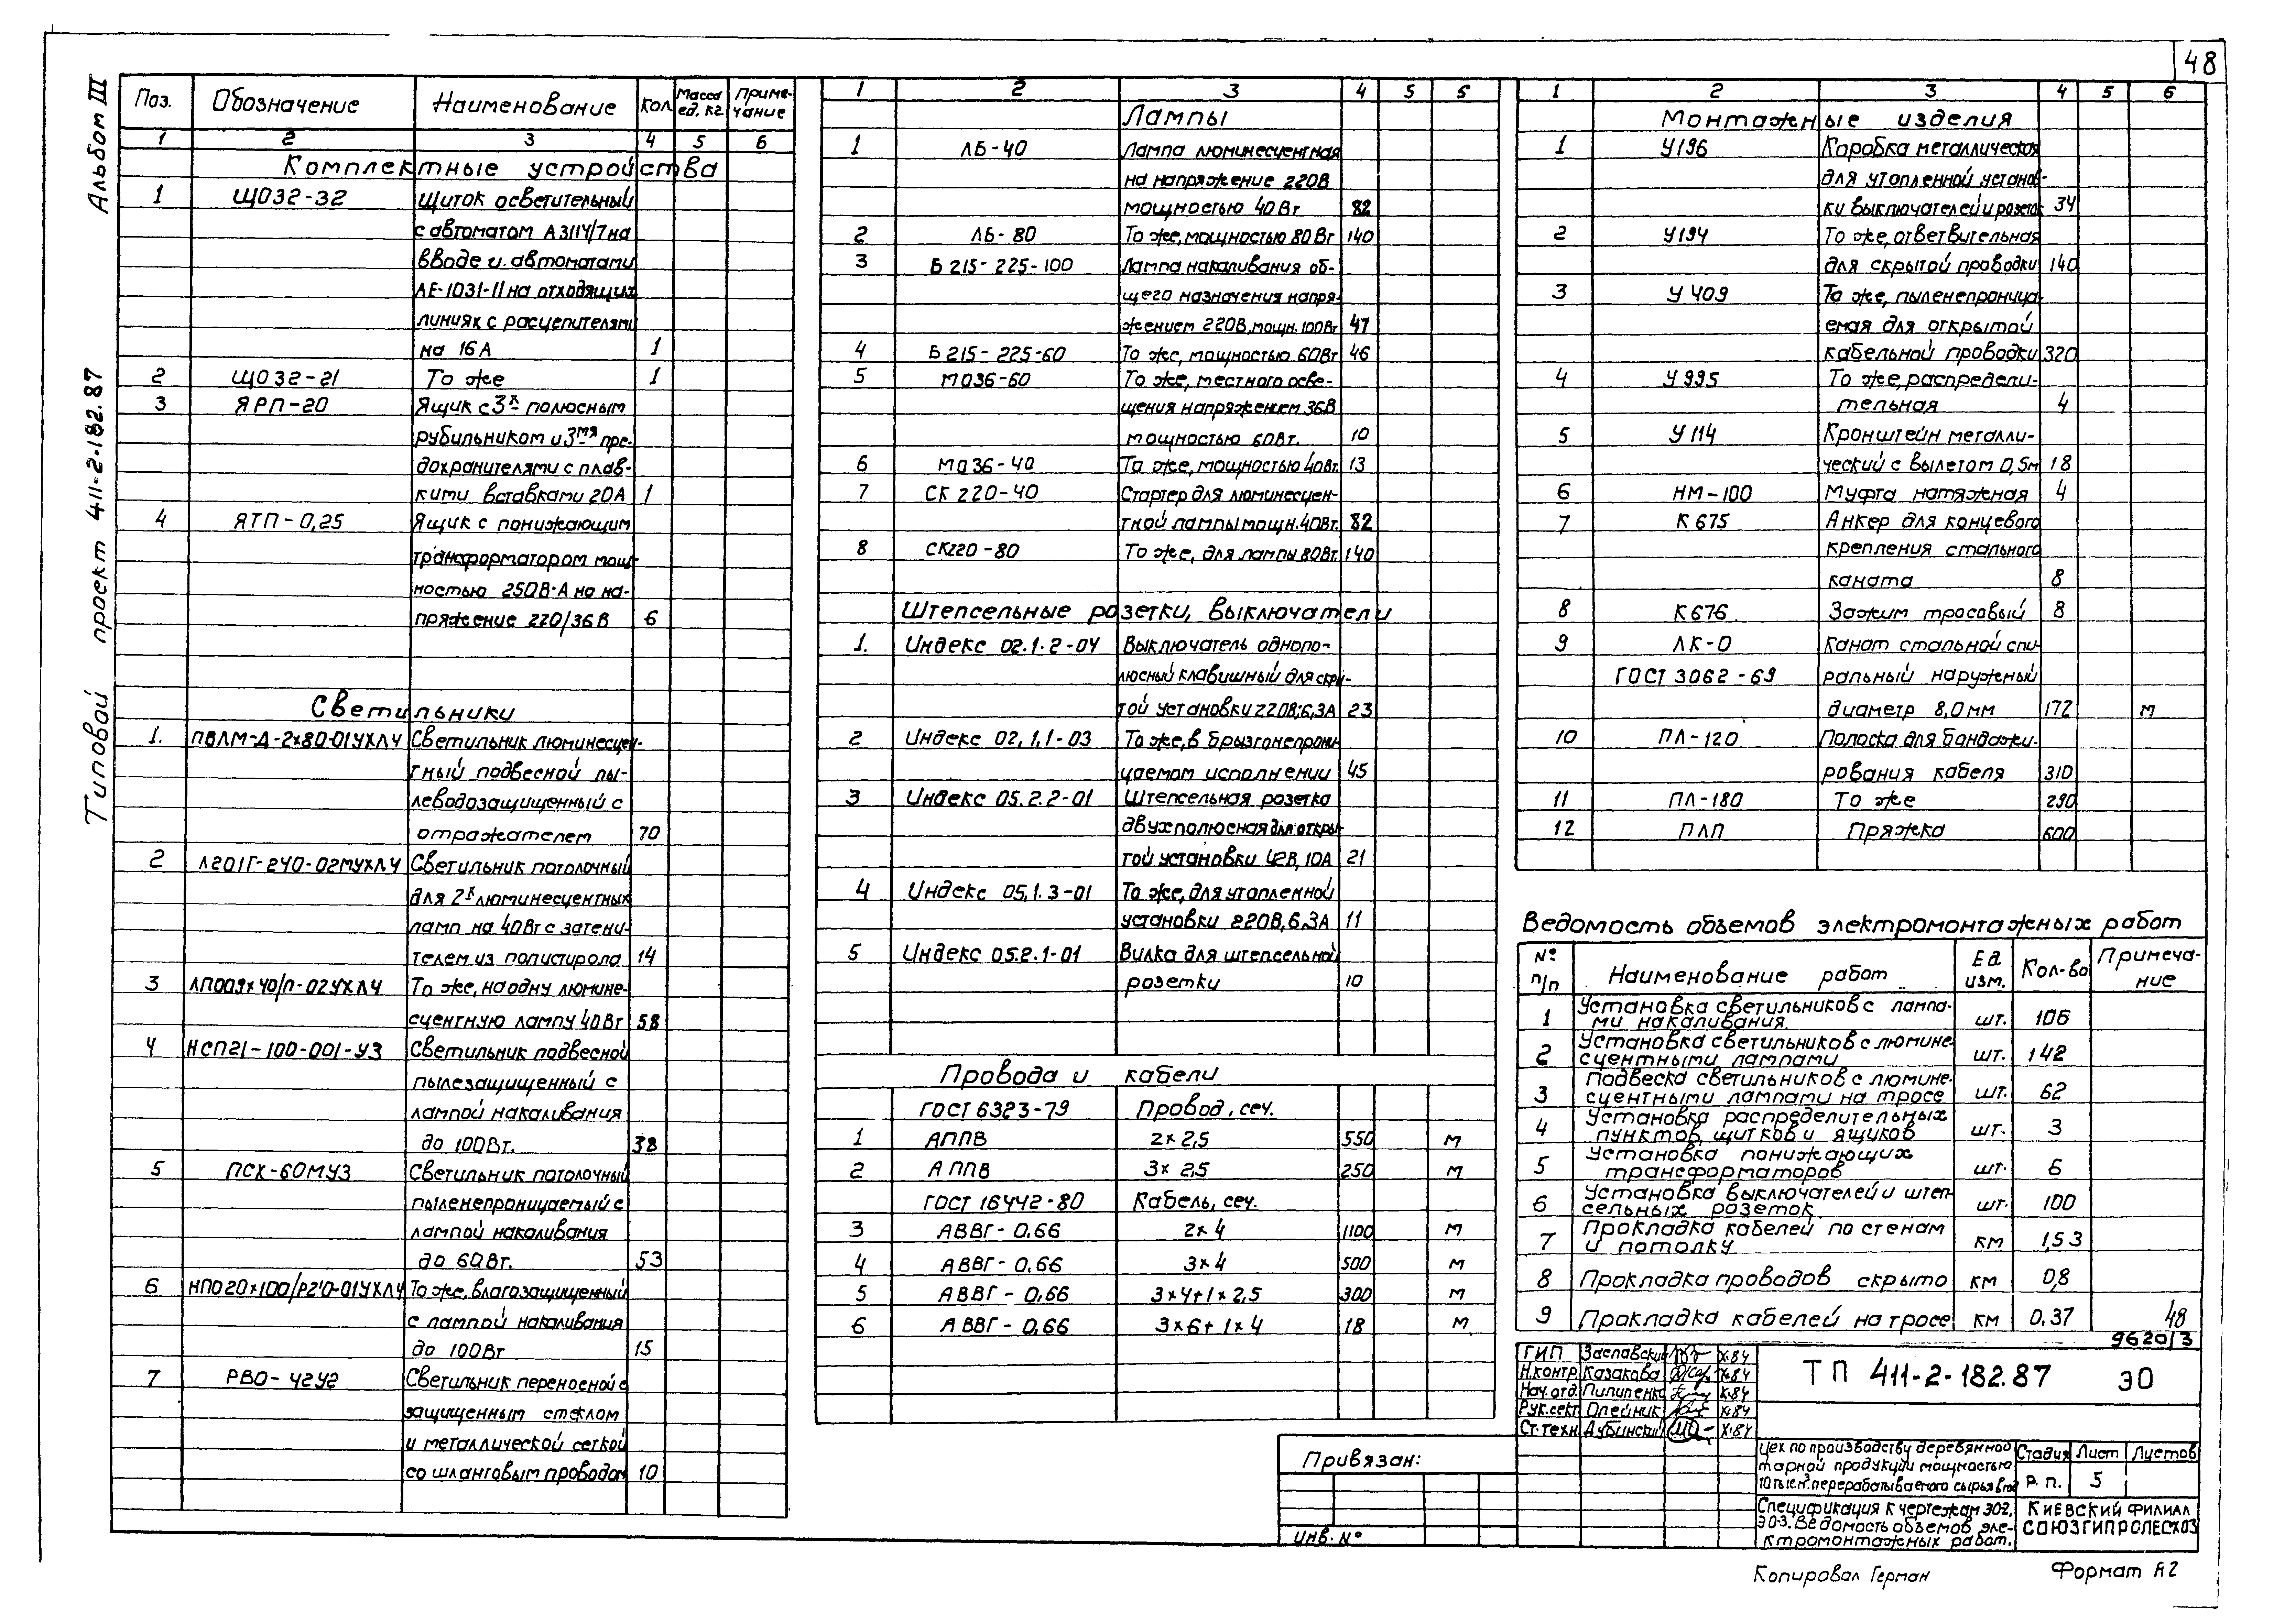 48
Альбом III
Типовой проект 411-2-182.87
Поз. Обозначение Наименование Кол. Масса ед. кг. Примечание
1 2 3 4 5 6
Комплектные устройства
1 ЩО32-32 Щиток осветительный
с автоматом А3114/7 на
вводе и автоматами
АЕ-1031-11 на отходящих
линиях с расцепителями
на 16А 1
2 ЩО32-21 То же 1
3 ЯРП-20 Ящик с 3х полюсным
рубильником и 3мя пре-
дохранителями с плав-
кими вставками 20А 1
4 ЯТП-0,25 Ящик с понижающим
трансформатором мощ-
ностью 250В·А на на-
пряжение 220/36В 6
Светильники
1. ПВЛМ-Д-2х80-01УХЛ4 Светильник люминесцен-
тный подвесной пы-
леводозащищенный с
отражателем 70
2 Л201Г-240-02МУХЛ4 Светильник потолочный
для 2х люминесцентных
ламп на 40Вт с затени-
телем из полистирола 14
3 ЛП009х40/П-02УХЛ4 То же, на одну люмине-
сцентную лампу 40Вт 58
4 НСП21-100-001-У3 Светильник подвесной
пылезащищенный с
лампой накаливания
до 100Вт. 38
5 ПСХ-60МУ3 Светильник потолочный
пыленепроницаемый с
лампой накаливания
до 60Вт. 53
6 НПО20х100/Р2'0-01УХЛ4 То же, влагозащищенный
с лампой накаливания
до 100Вт 15
7 РВО-42У2 Светильник переносной с
защищенным стеклом
и металлической сеткой
со шланговым проводом 10
1 2 3 4 5 6
Лампы
1 ЛБ-40 Лампа люминесцентная
на напряжение 220В
мощностью 40Вт 82
2 ЛБ-80 То же, мощностью 80Вт 140
3 Б215-225-100 Лампа накаливания об-
щего назначения напря-
жением 220В, мощн. 100Вт 47
4 Б215-225-60 То же, мощностью 60Вт 46
5 МО36-60 То же, местного осве-
щения напряжением 36В
мощностью 60Вт. 10
6 МО36-40 То же, мощностью 40Вт. 13
7 СК220-40 Стартер для люминесцен-
тной лампы мощн. 40Вт. 82
8 СК220-80 То же, для лампы 80Вт. 140
Штепсельные розетки, выключатели
1. Индекс 02.1.2-04 Выключатель однопо-
люсный клавишный для скры-
той установки 220В; 6,3А 23
2 Индекс 02,1,1-03 То же, в брызгонепрони-
цаемом исполнении 45
3 Индекс 05.2.2-01 Штепсельная розетка
двухполюсная для откры-
той установки 42В, 10А 21
4 Индекс 05,1.3-01 То же, для утопленной
установки 220В, 6,3А 11
5 Индекс 05.2.1-01 Вилка для штепсельной
розетки 10
Провода и кабели
ГОСТ 6323-79 Провод, сеч.
1 АППВ 2х2,5 550 м
2 АППВ 3х2,5 250 м
ГОСТ 16442-80 Кабель, сеч.
3 АВВГ-0,66 2х4 1100 м
4 АВВГ-0,66 3х4 500 м
5 АВВГ-0,66 3х4+1х2,5 300 м
6 АВВГ-0,66 3х6+1х4 18 м
1 2 3 4 5 6
Монтажные изделия
1 У196 Коробка металлическая
для утопленной установ-
ки выключателей и розеток 34
2 У194 То же, ответвительная
для скрытой проводки 140
3 У409 То же, пыленепроница-
емая для открытой
кабельной проводки 320
4 У995 То же, распредели-
тельная 4
5 У114 Кронштейн металли-
ческий с вылетом 0,5м 18
6 НМ-100 Муфта натяжная 4
7 К675 Анкер для концевого
крепления стального
каната 8
8 К676 Зажим тросовый 8
9 ЛК-0 Канат стальной спи-
ГОСТ 3062-69 ральный наружный
диаметр 8,0мм 172 м
10 ПЛ-120 Полоска для бандажи-
рования кабеля 310
11 ПЛ-180 То же 290
12 ПЛП Пряжка 600
Ведомость объемов электромонтажных работ
№ п/п Наименование работ Ед. изм. Кол-во Примечание
1 Установка светильников с лампа-
ми накаливания. шт. 106
2 Установка светильников с люмине-
сцентными лампами шт. 142
3 Подвеска светильников с люмине-
сцентными лампами на тросе шт. 62
4 Установка распределительных
пунктов, щитков и ящиков шт. 3
5 Установка понижающих
трансформаторов шт. 6
6 Установка выключателей и штеп-
сельных розеток шт. 100
7 Прокладка кабелей по стенам
и потолку км 1,53
8 Прокладка проводов скрыто км 0,8
9 Прокладка кабелей на тросе км 0,37
48
9620/3
ГИП Заславский X-84
Н.контр. Казакова X-84
Нач.отд. Пилипенко X-84
Рук.сект. Олейник X-84
Ст.техн. Дубинский X-84
ТП 411-2-182.87 ЭО
Привязан:
Инв. №
Цех по производству деревянной
тарной продукции мощностью
10 тыс.м³ перерабатываемого сырья в год
Стадия Лист Листов
Р.П. 5
Спецификация к чертежам ЭО2,
ЭО-3. Ведомость объемов эле-
ктромонтажных работ.
КИЕВСКИЙ ФИЛИАЛ
СОЮЗГИПРОЛЕСХОЗ
Копировал Герман
Формат А2